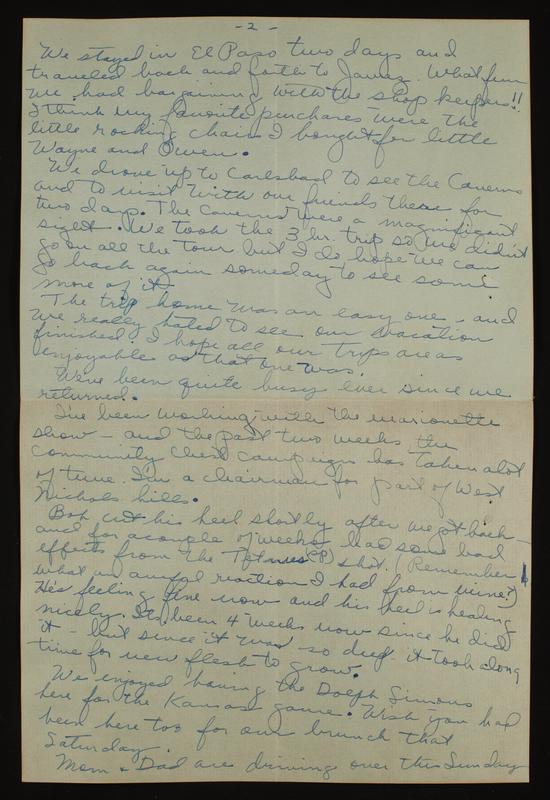 - 2 -
We stayed in El Paso two days and
traveled back and forth to Jaurez. What fun
we had bargaining with the shop keepers!!
I think my favorite purchases were the
little rocking chairs I bought for little
Wayne and Owen.
We drove up to Carlsbad to see the Caverns
and to visit with our friends there for
two days. The caverns were a magnificent
sight. We took the 3 hr. trip so we didn't
go on all the tour but I do hope we can
go back again someday to see some
more of it.
The trip home was an easy one - and
we really hated to see our vacation
finished. I hope all our trips are as
enjoyable as that one was.
We've been quite busy ever since we
returned.
I've been working with the marionette
show - and the past two weeks the
community chest campaign has taken alot
of time. I'm a chairman for part of West
Nichols hills.
Bob cut his heel shortly after we got back -
and for a couple of weeks had some bad
effects from the Tetnus (sp) shot. (Remember
what an awful reaction I had from mine?)
He's feeling fine now and his heel is healing
nicely. Its been 4 weeks now since he did
it - but since it was so deep - it took along
time for new flesh to grow.
We enjoyed having the Dolph Simons
here for the Kansas game. Wish you had
been here too for our brunch that
Saturday.
Mom & Dad are driving over this Sunday